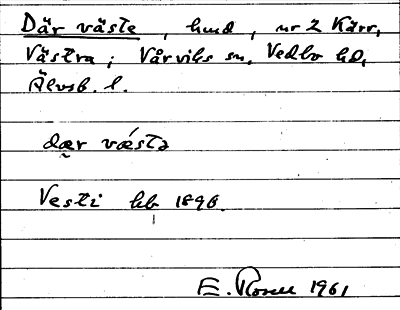 Där väste, hmd, nr 2 Kärr,
Västra; Vårviks sn, Vedbo hd,
Älvsb. l.
dær vǽstə
Vesti hb 1890.
E. Rosell 1961